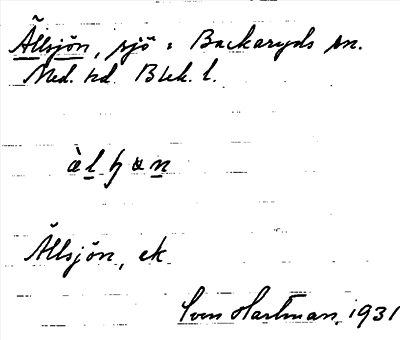 Ällsjön, sjö i Backaryds sn.
Med. hd. Blek. l.
Ällsjön, ek
Sven Hartman. 1931